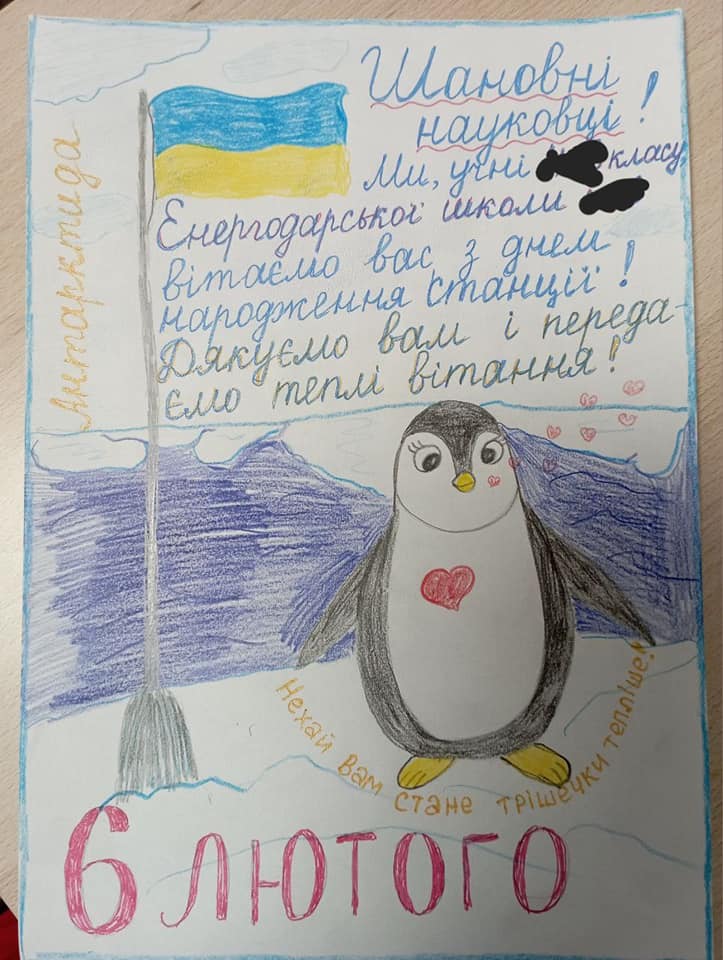 Антарктида
Шановні
науковці!
Ми, учні класу,
Єнергодарської школи
вітаємо вас з днем
народження станції!
Дякуємо вам і переда-
ємо теплі вітання!
Нехай вам стане трішечки тепліше!
6 ЛЮТОГО